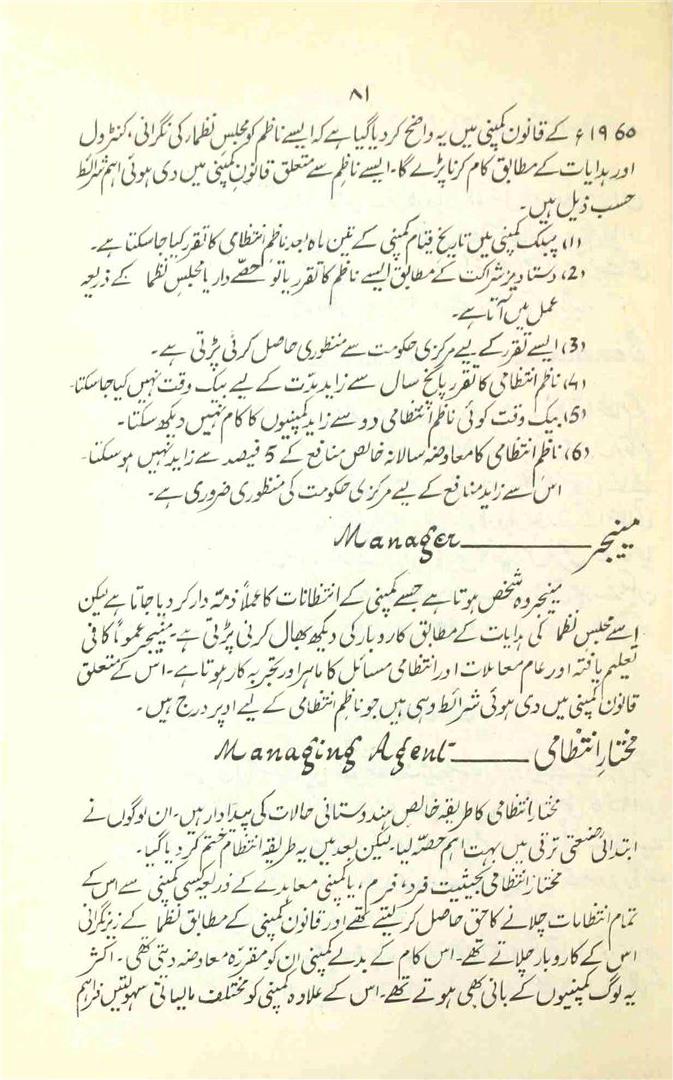 ۸۱
1960ء کے قانون کمپنی میں یہ واضح کر دیا گیا ہے کہ ایسے ناظم کو مجلس نظماء کی نگرانی، کنٹرول
اور ہدایات کے مطابق کام کرنا پڑے گا۔ ایسے ناظم سے متعلق قانون کمپنی میں دی ہوئی اہم شرائط
حسب ذیل ہیں۔
(1) پبلک کمپنی میں تاریخ قیام کمپنی کے تین ماہ بعد ناظم انتظامی کا تقرر کیا جا سکتا ہے۔
(2) دستاویز شراکت کے مطابق ایسے ناظم کا تقرر یا تو حصّے دار یا مجلس نظما کے ذریعہ
عمل میں آتا ہے۔
(3) ایسے تقرر کے لیے مرکزی حکومت سے منظوری حاصل کرنی پڑتی ہے۔
(4) ناظم انتظامی کا تقرر پانچ سال سے زاید مدّت کے لیے بیک وقت نہیں کیا جا سکتا۔
(5) بیک وقت کوئی ناظم انتظامی دو سے زاید کمپنیوں کا کام نہیں دیکھ سکتا۔
(6) ناظم انتظامی کا معاوضہ سالانہ خالص منافع کے 5 فیصد سے زاید نہیں ہو سکتا۔
اس سے زاید منافع کے لیے مرکزی حکومت کی منظوری ضروری ہے۔
مینیجر ــــــــ Manager
مینیجر وہ شخص ہوتا ہے جسے کمپنی کے انتظامات کا عملاً ذمّہ دار کر دیا جاتا ہے لیکن
اسے مجلس نظما کی ہدایات کے مطابق کاروبار کی دیکھ بھال کرنی پڑتی ہے۔ مینیجر عموماً کافی
تعلیم یافتہ اور عام معاملات اور انتظامی مسائل کا ماہر اور تجربہ کار ہوتا ہے۔ اس کے متعلق
قانون کمپنی میں دی ہوئی شرائط وہی ہیں جو ناظم انتظامی کے لیے اوپر درج ہیں۔
مختارِ انتظامی ــــــــ Managing Agent
مختار انتظامی کا طریقہ خالص ہندوستانی حالات کی پیداوار ہیں۔ ان لوگوں نے
ابتدائی صنعتی ترقی میں بہت اہم حصّہ لیا۔ لیکن بعد میں یہ طریقۂ انتظام ختم کر دیا گیا۔
مختار انتظامی بحیثیت فرد، فرم، یا کمپنی معاہدے کے ذریعہ کسی کمپنی سے اس کے
تمام انتظامات چلانے کا حق حاصل کر لیتے تھے اور قانون کمپنی کے مطابق نظما کے زیر نگرانی
اس کے کاروبار چلاتے تھے۔ اس کام کے بدلے کمپنی ان کو مقررہ معاوضہ دیتی تھی۔ اکثر
یہ لوگ کمپنیوں کے بانی بھی ہوتے تھے۔ اس کے علاوہ کمپنی کو مختلف مالیاتی سہولتیں فراہم